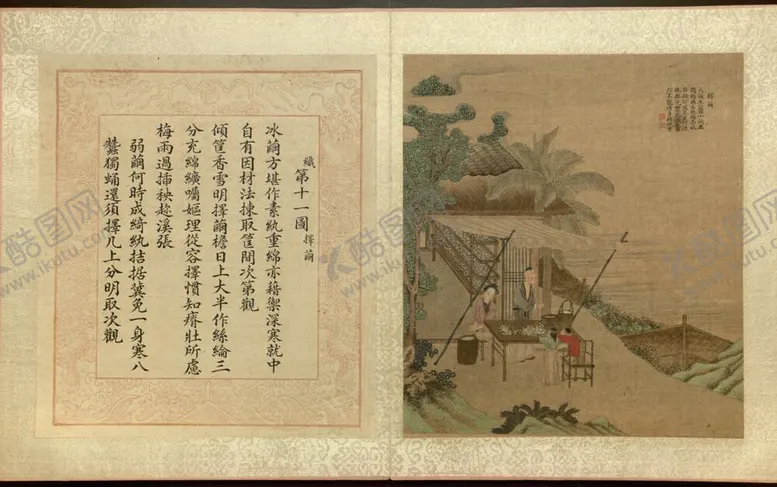 織第十一圖 擇繭
冰繭方堪作素紈重綿亦藉禦深寒就中
自有因材法揀取筐間次第觀
傾筐香雪明擇繭檐日上大半作絲綸三
分充綿纊嚙嫗理從容擇慣知瘠壯所慮
梅雨過插秧趁溪張
弱繭何時成綺紈拮据冀免一身寒八
蠶獨蛹還須擇几上分明取次觀
擇繭
酷图网
www.ikutu.com